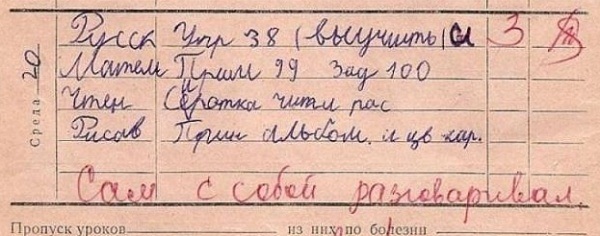 Среда 20
Русск Упр 38 (выучить) и 3
Матем Прим 99 Зад 100
Чтен читл рас
Рисов Прин альбом. и цв кар.
Сам с собой разговаривал
Пропуск уроков из них по болезни